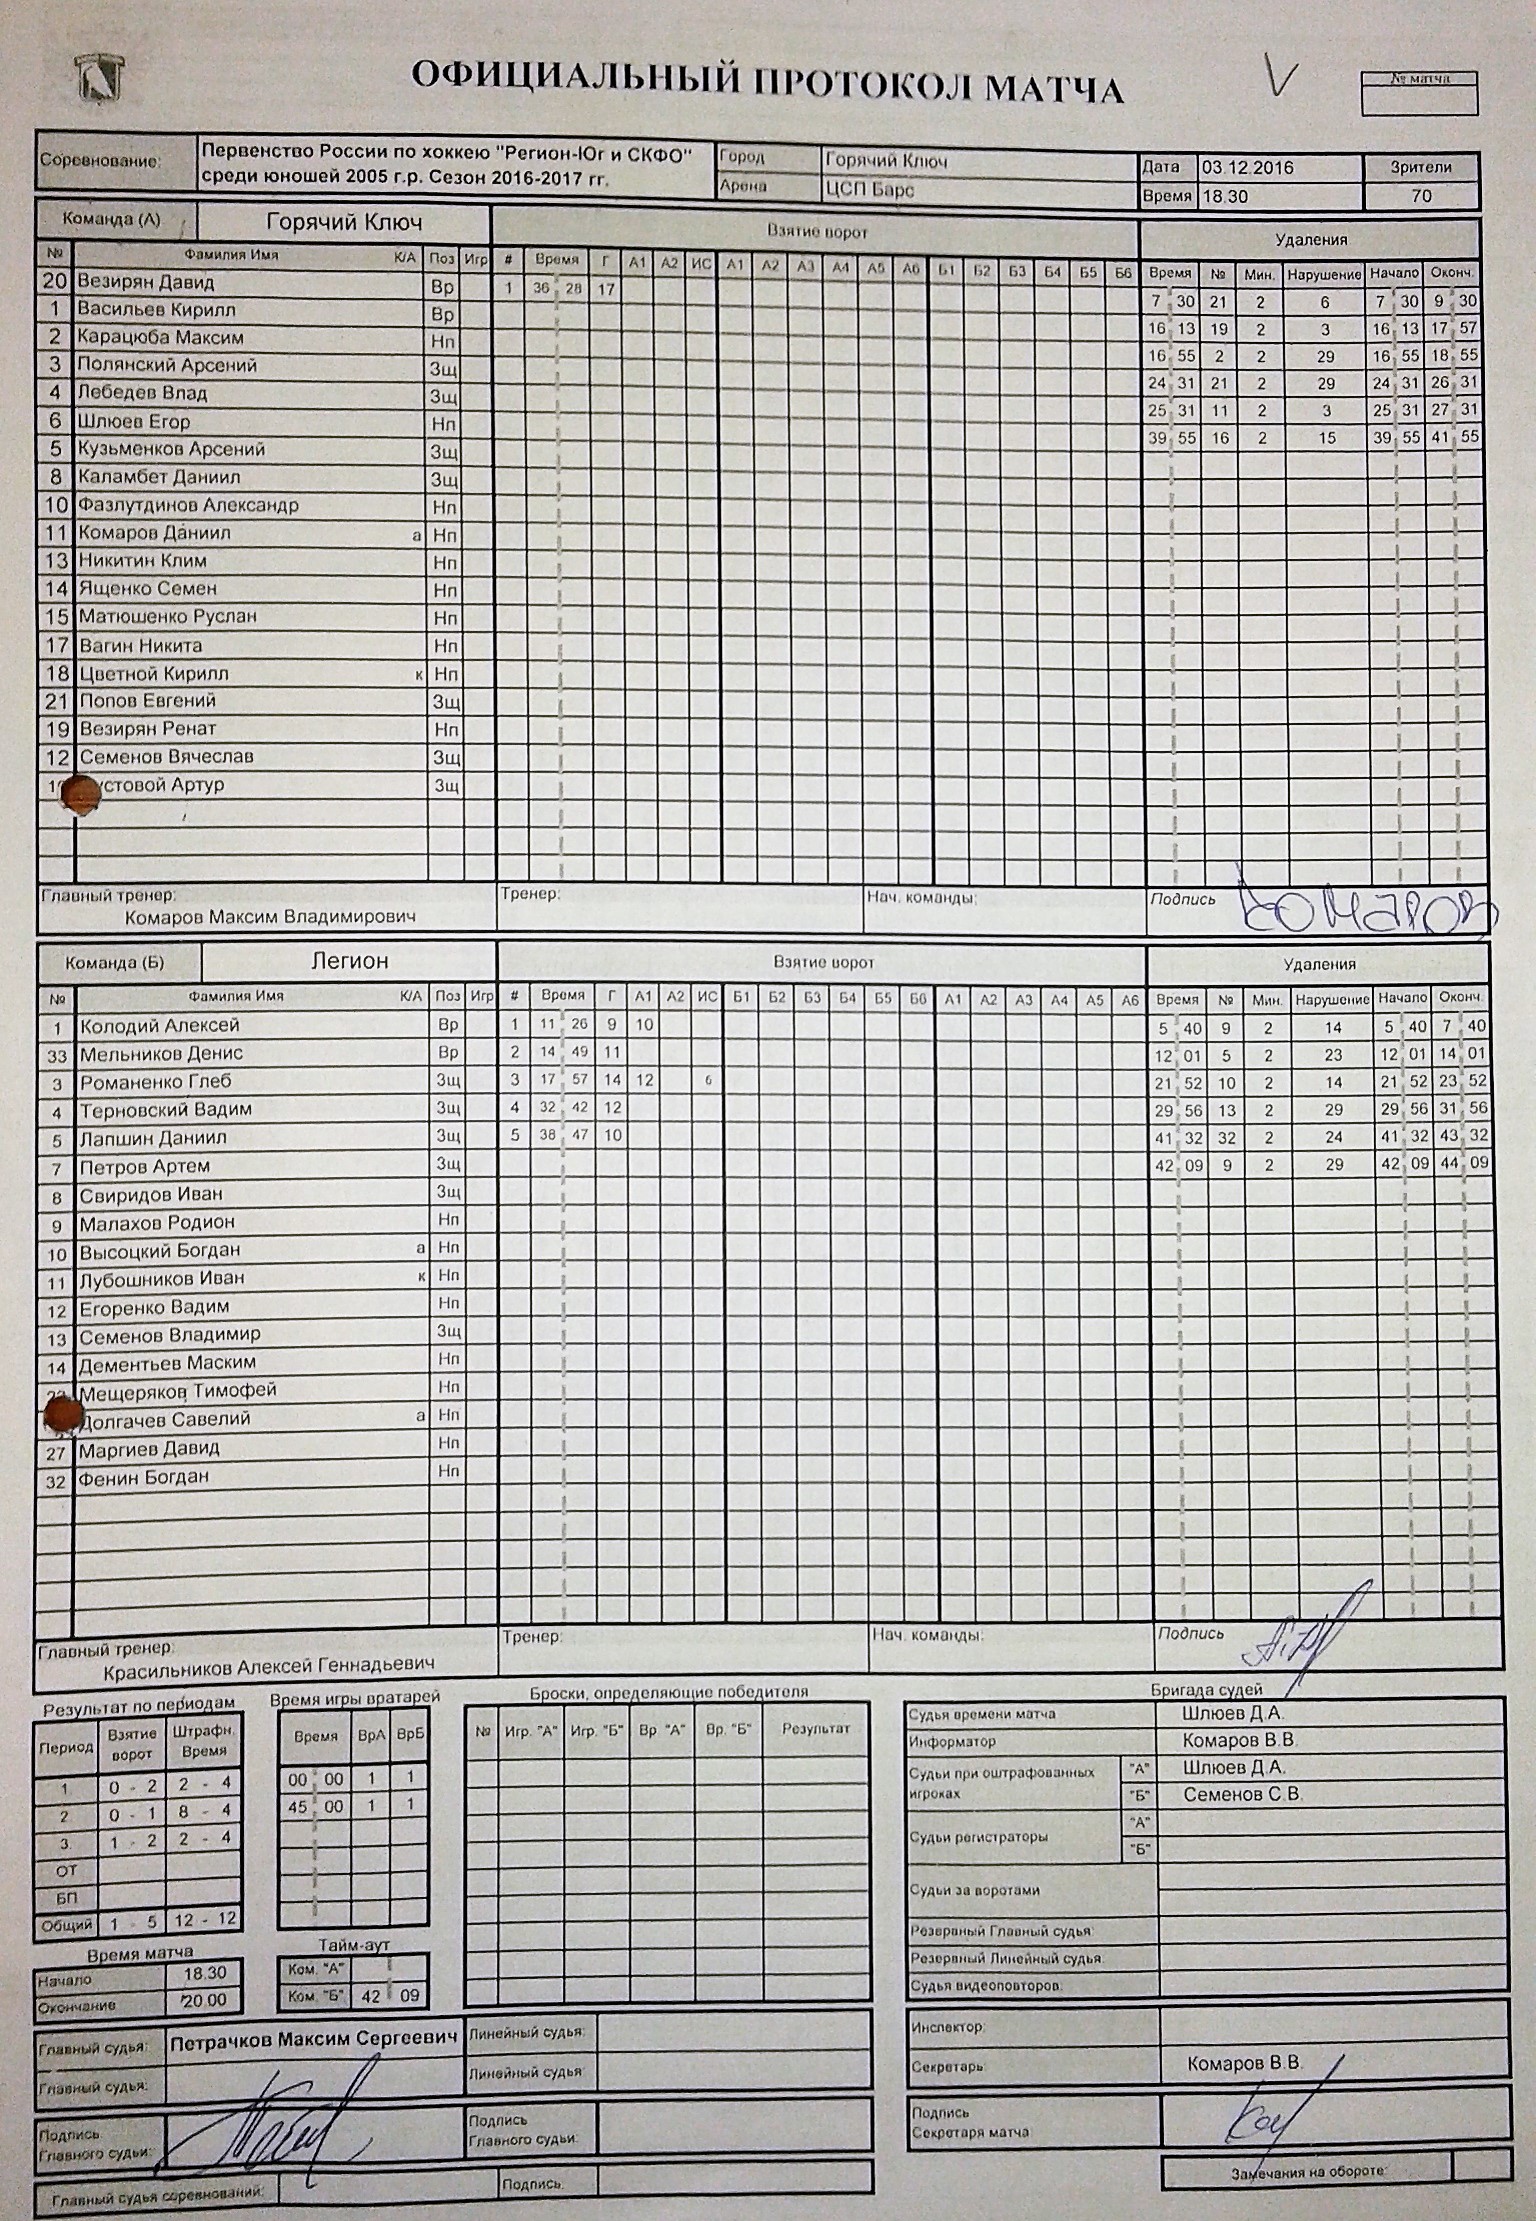 ОФИЦИАЛЬНЫЙ ПРОТОКОЛ МАТЧА
№ матча
Соревнование: Первенство России по хоккею "Регион-Юг и СКФО" Город Горячий Ключ Дата 03.12.2016 Зрители
среди юношей 2005 г.р. Сезон 2016-2017 гг. Арена ЦСП Барс Время 18.30 70
Команда (А) Горячий Ключ Взятие ворот Удаления
№ Фамилия Имя К/А Поз Игр # Время Г А1 А2 ИС А1 А2 А3 А4 А5 А6 Б1 Б2 Б3 Б4 Б5 Б6 Время № Мин. Нарушение Начало Оконч.
20 Везирян Давид Вр 1 36 28 17 7 30 21 2 6 7 30 9 30
1 Васильев Кирилл Вр 16 13 19 2 3 16 13 17 57
2 Карацюба Максим Нп 16 55 2 2 29 16 55 18 55
3 Полянский Арсений Зщ 24 31 21 2 29 24 31 26 31
4 Лебедев Влад Зщ 25 31 11 2 3 25 31 27 31
6 Шлюев Егор Нп 39 55 16 2 15 39 55 41 55
5 Кузьменков Арсений Зщ
8 Каламбет Даниил Зщ
10 Фазлутдинов Александр Нп
11 Комаров Даниил а Нп
13 Никитин Клим Нп
14 Ященко Семен Нп
15 Матюшенко Руслан Нп
17 Вагин Никита Нп
18 Цветной Кирилл к Нп
21 Попов Евгений Зщ
19 Везирян Ренат Нп
12 Семенов Вячеслав Зщ
Артур Зщ
Главный тренер: Тренер: Нач. команды: Подпись Комаров
Комаров Максим Владимирович
Команда (Б) Легион Взятие ворот Удаления
№ Фамилия Имя К/А Поз Игр # Время Г А1 А2 ИС Б1 Б2 Б3 Б4 Б5 Б6 А1 А2 А3 А4 А5 А6 Время № Мин. Нарушение Начало Оконч.
1 Колодий Алексей Вр 1 11 26 9 10 5 40 9 2 14 5 40 7 40
33 Мельников Денис Вр 2 14 49 11 12 01 5 2 23 12 01 14 01
3 Романенко Глеб Зщ 3 17 57 14 12 б 21 52 10 2 14 21 52 23 52
4 Терновский Вадим Зщ 4 32 42 12 29 56 13 2 29 29 56 31 56
5 Лапшин Даниил Зщ 5 38 47 10 41 32 32 2 24 41 32 43 32
7 Петров Артем Зщ 42 09 9 2 29 42 09 44 09
8 Свиридов Иван Зщ
9 Малахов Родион Нп
10 Высоцкий Богдан а Нп
11 Лубошников Иван к Нп
12 Егоренко Вадим Нп
13 Семенов Владимир Зщ
14 Дементьев Маским Нп
Мещеряков Тимофей Нп
Долгачев Савелий а Нп
27 Маргиев Давид Нп
32 Фенин Богдан Нп
Главный тренер: Тренер: Нач. команды: Подпись
Красильников Алексей Геннадьевич
Результат по периодам Время игры вратарей Броски, определяющие победителя Бригада судей
Период Взятие ворот Штрафн. Время
1 0 - 2 2 - 4
2 0 - 1 8 - 4
3 1 - 2 2 - 4
ОТ
БП
Общий 1 - 5 12 - 12
Время матча
Начало 18.30
Окончание 20.00
Время ВрА ВрБ
00 00 1 1
45 00 1 1
Тайм-аут
Ком. "А"
Ком. "Б" 42 09
№ Игр. "А" Игр. "Б" Вр. "А" Вр. "Б" Результат
Судья времени матча Шлюев Д.А.
Информатор Комаров В.В.
Судьи при оштрафованных игроках "А" Шлюев Д.А.
"Б" Семенов С.В.
Судьи регистраторы "А"
"Б"
Судьи за воротами
Резервный Главный судья:
Резервный Линейный судья:
Судья видеоповторов:
Инспектор:
Секретарь: Комаров В.В.
Подпись
Секретаря матча:
Замечания на обороте:
Главный судья: Петрачков Максим Сергеевич Линейный судья:
Главный судья: Линейный судья:
Подпись Главного судьи: Подпись Главного судьи:
Главный судья соревнований: Подпись: